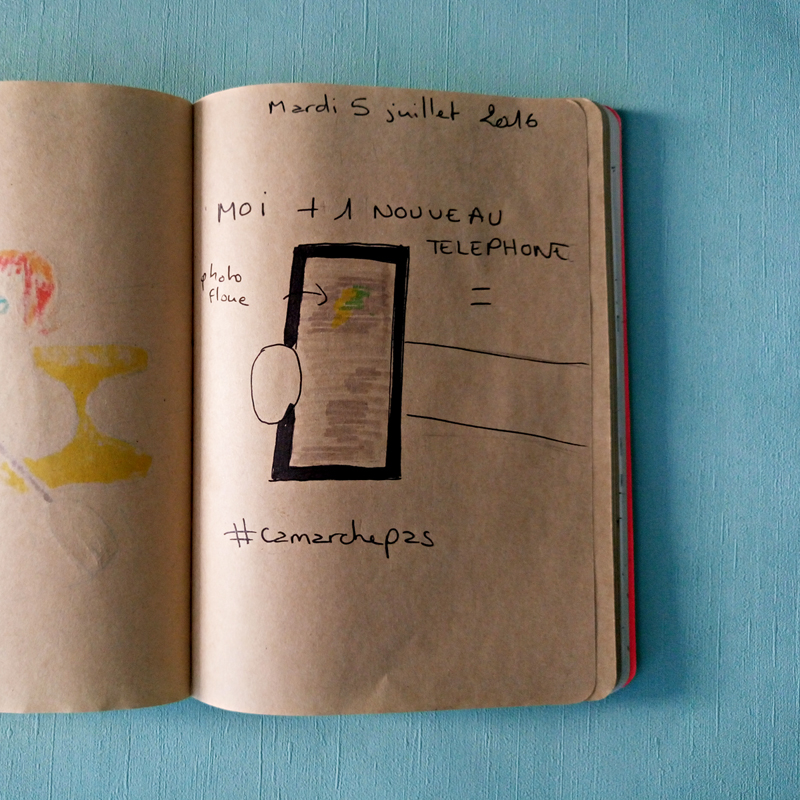 Mardi 5 juillet 2016
MOI + 1 NOUVEAU
TELEPHONE
=
photo
floue
#camarchepas